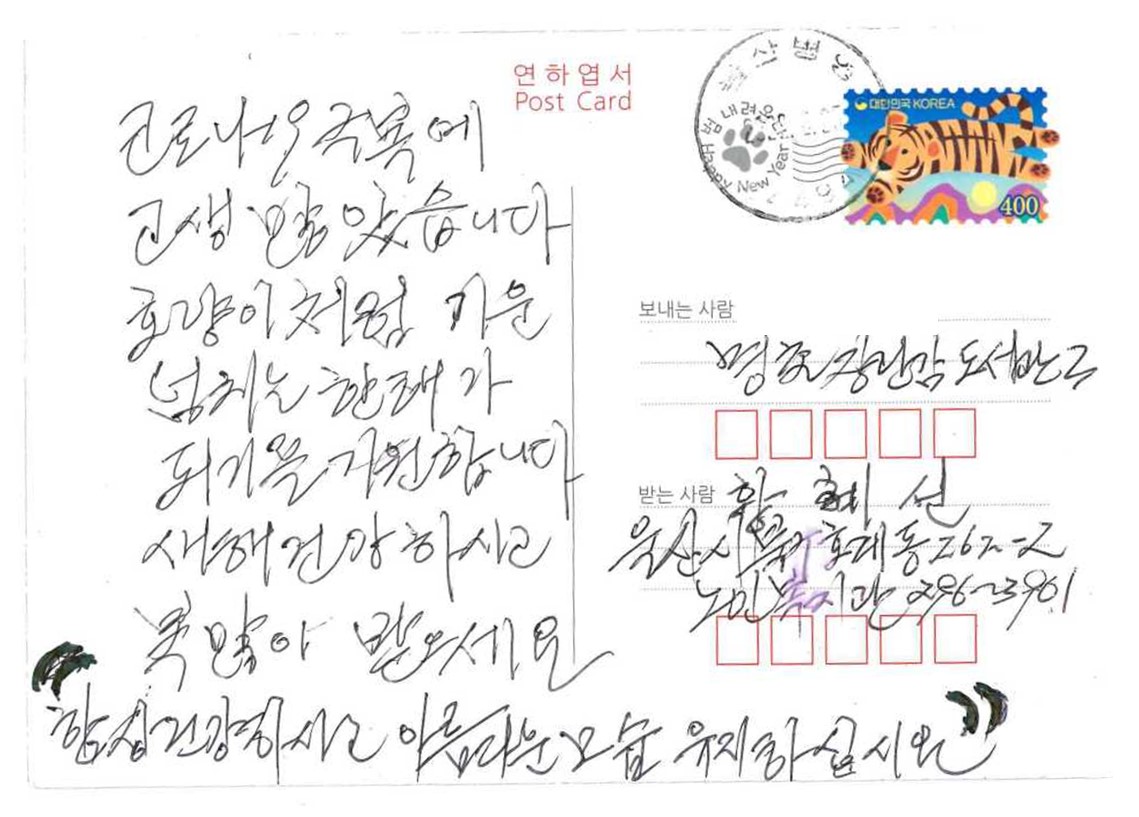 연하엽서
Post Card
대한민국 KOREA
400
범 내려온다
Happy New Year
코로나19 극복에
고생 많았습니다
호랑이처럼 기운
넘치는 한해가
되기를 기원합니다
새해 건강하시고
복 많이 받으세요
"항상건강하시고 아름다운모습 유지하십시요"
보내는 사람
장난감도서관
받는 사람
황혜선
울산시 북구 호계동 262-2
노인복지관 296-3961